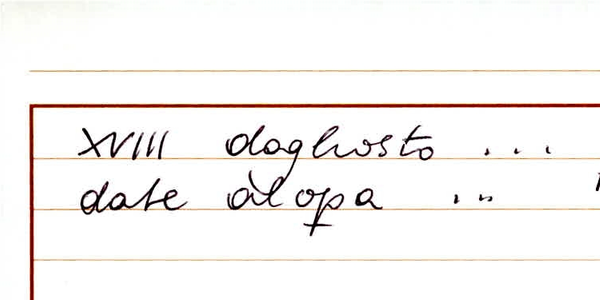 XVIII daghosto ...
date àl opa ...